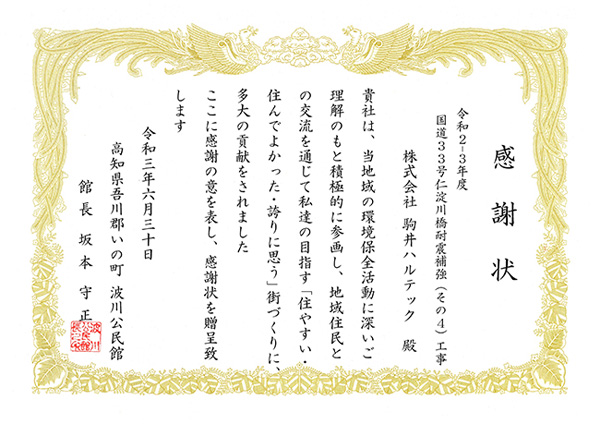 感謝状
令和2-3年度
国道33号仁淀川橋耐震補強（その4）工事
株式会社 駒井ハルテック 殿
貴社は、当地域の環境保全活動に深いご
理解のもと積極的に参画し、地域住民と
の交流を通じて私達の目指す「住やすい・
住んでよかった・誇りに思う」街づくりに、
多大の貢献をされました
ここに感謝の意を表し、感謝状を贈呈致
します
令和三年六月三十日
高知県吾川郡いの町 波川公民館
館長 坂本 守正